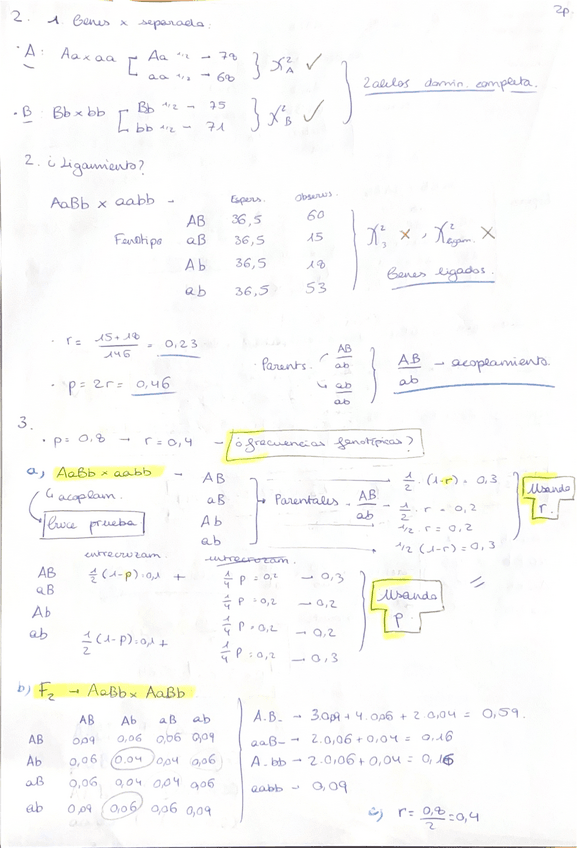 2p
2. 1 Genes x separado.
· A: Aa x aa [ Aa 1/2 → 78
aa 1/2 → 68 } χ²A ✓
· B: Bb x bb [ Bb 1/2 → 75
bb 1/2 → 71 } χ²B ✓
2 alelos domin. completa.
2. ¿Ligamiento?
AaBb x aabb -
Espers. Observs.
AB 36,5 60
Fenotipo aB 36,5 15
Ab 36,5 18
ab 36,5 53
χ²3 X, χ² X
Genes ligados.
· r = 15+18/146 = 0,23
· p = 2r = 0,46
· Parents. AB/ab
ab/ab
AB/ab - acoplamiento
3.
· p = 0,8 → r = 0,4 - ¿frecuencias fenotípicas?
a) AaBb x aabb -
↳ acoplam.
Cruce prueba
AB
aB
Ab
ab
Parentales - AB/ab
1/2 · (1-r) = 0,3
1/2 · r = 0,2
1/2 r = 0,2
1/2 (1-r) = 0,3
Usando r.
entrecruzam. entrecruzam.
AB 1/2 (1-p)=0,1 + 1/4 p = 0,2 → 0,3
aB 1/4 p = 0,2 → 0,2
Ab 1/4 p = 0,2 → 0,2
ab 1/2 (1-p)=0,1 + 1/4 p = 0,2 → 0,3
Usando p.
=
b) F2 → AaBb x AaBb
AB Ab aB ab
AB 0,09 0,06 0,06 0,09
Ab 0,06 0,04 0,04 0,06
aB 0,06 0,04 0,04 0,06
ab 0,09 0,06 0,06 0,09
A_B_ → 3·0,09 + 4·0,06 + 2·0,04 = 0,59.
aaB_ → 2·0,06 + 0,04 = 0,16
A_bb → 2·0,06 + 0,04 = 0,16
aabb → 0,09
c) r = 0,8/2 = 0,4